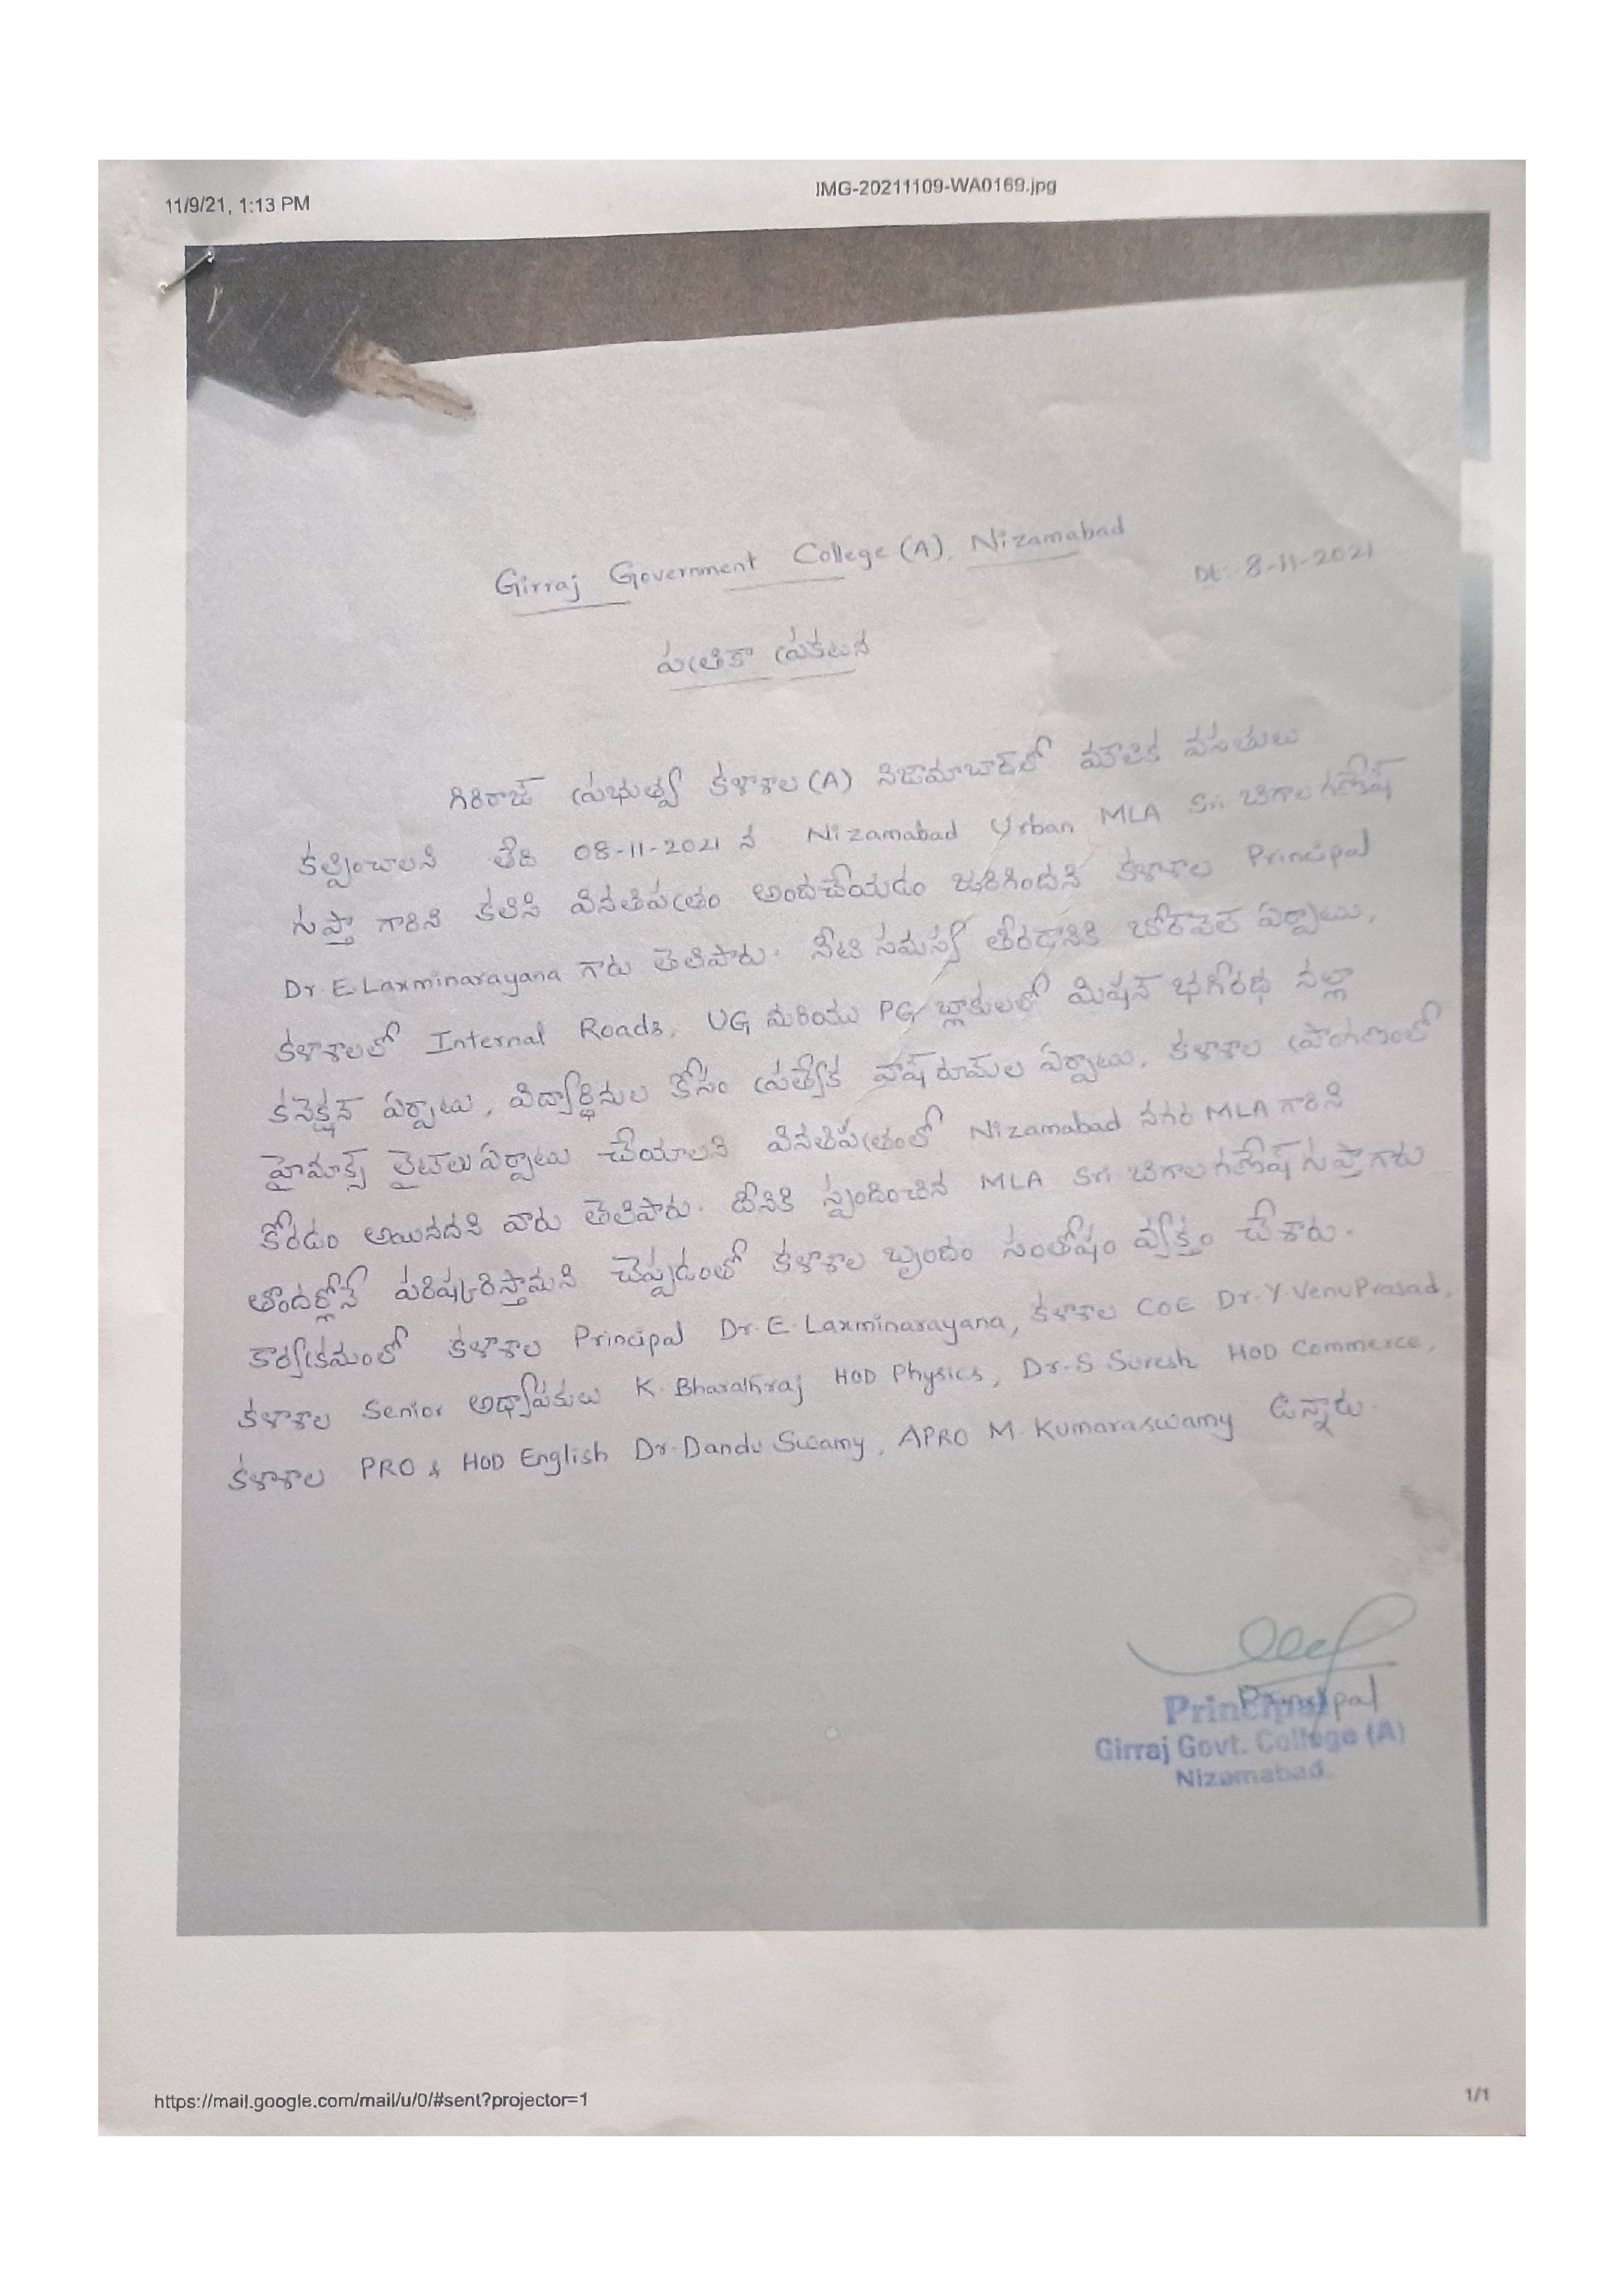 11/9/21, 1:13 PM
IMG-20211109-WA0169.jpg
Girraj Government College (A), Nizamabad
Dt: 8-11-2021
పత్రికా ప్రకటన
గిరిరాజ్ ప్రభుత్వ కళాశాల (A) నిజామాబాద్‌లో మౌలిక వసతులు
కల్పించాలని తేది 08-11-2021 న Nizamabad Urban MLA Sri బిగాల గణేష్
గుప్తా గారిని కలిసి వినతిపత్రం అందచేయడం జరిగిందని కళాశాల Principal
Dr. E. Laxminarayana గారు తెలిపారు. నీటి సమస్య తీరడానికి బోర్‌వెల్ ఏర్పాటు,
కళాశాలలో Internal Roads, UG మరియు PG బ్లాకులలో మిషన్ భగీరథ నల్లా
కనెక్షన్ ఏర్పాటు, విద్యార్థినుల కోసం ప్రత్యేక వాష్ రూమ్‌ల ఏర్పాటు, కళాశాల ప్రాంగణంలో
హైమాక్స్ లైట్‌లు ఏర్పాటు చేయాలని వినతిపత్రంలో Nizamabad నగర MLA గారిని
కోరడం అయినదని వారు తెలిపారు. దీనికి స్పందించిన MLA Sri బిగాల గణేష్ గుప్తా గారు
తొందర్లోనే పరిష్కరిస్తామని చెప్పడంతో కళాశాల బృందం సంతోషం వ్యక్తం చేశారు.
కార్యక్రమంలో కళాశాల Principal Dr. E. Laxminarayana, కళాశాల COE Dr. Y. VenuPrasad,
కళాశాల Senior అధ్యాపకులు K. Bharathraj HOD Physics, Dr. S Suresh HOD Commerce,
కళాశాల PRO & HOD English Dr. Dandu Swamy, APRO M. Kumaraswamy ఉన్నారు.
Principal
Principal
Girraj Govt. College (A)
Nizamabad.
https://mail.google.com/mail/u/0/#sent?projector=1
1/1